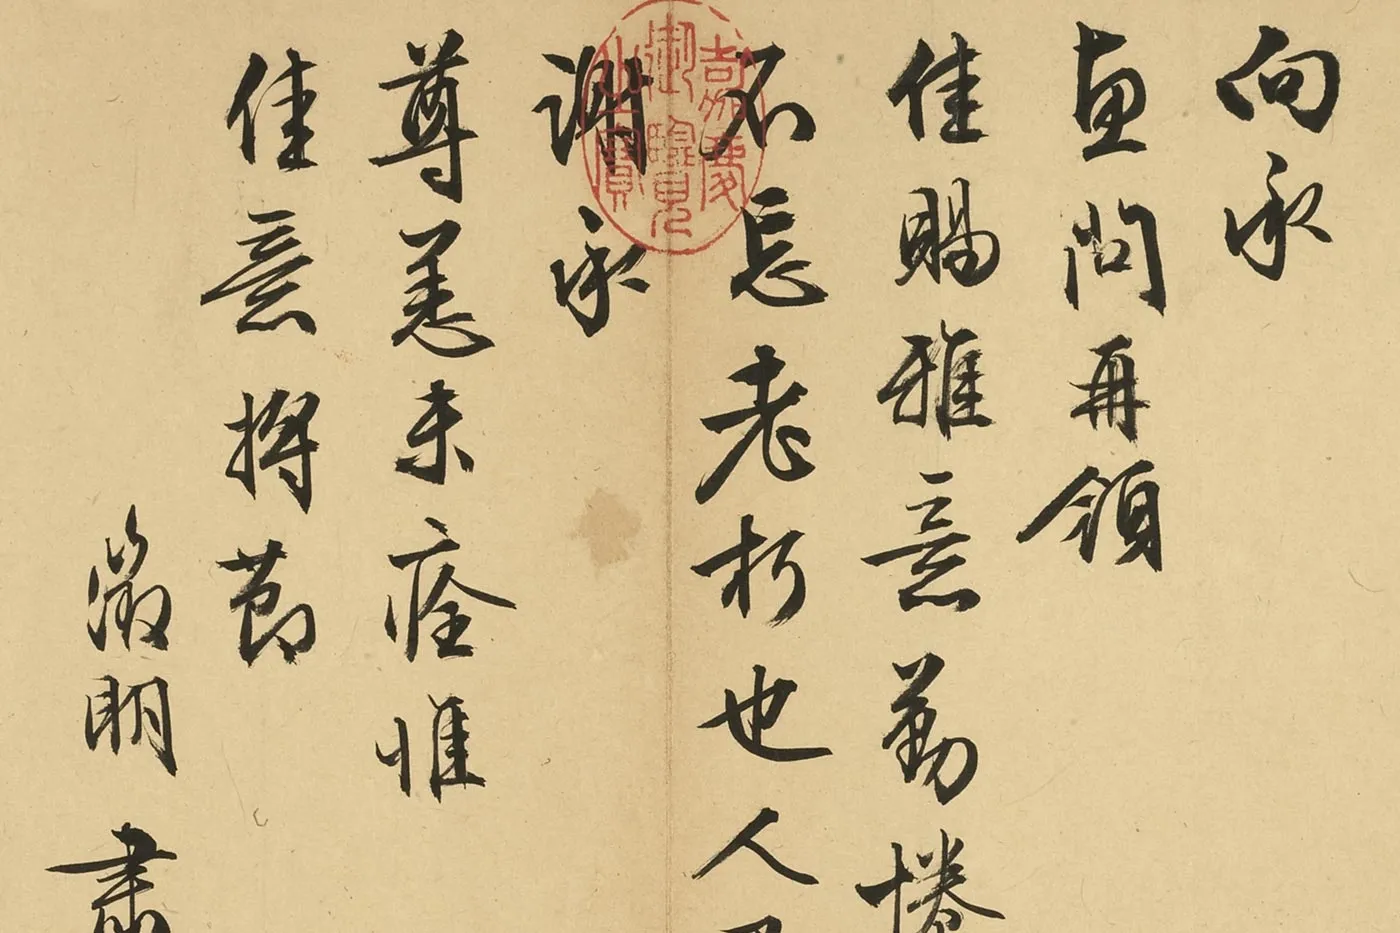 向承
惠問再領
佳賜雅意勤惓
不忘老朽也人
謝承
尊恙未痊惟
佳意撙節
徵明肅
嘉慶御覽之寶